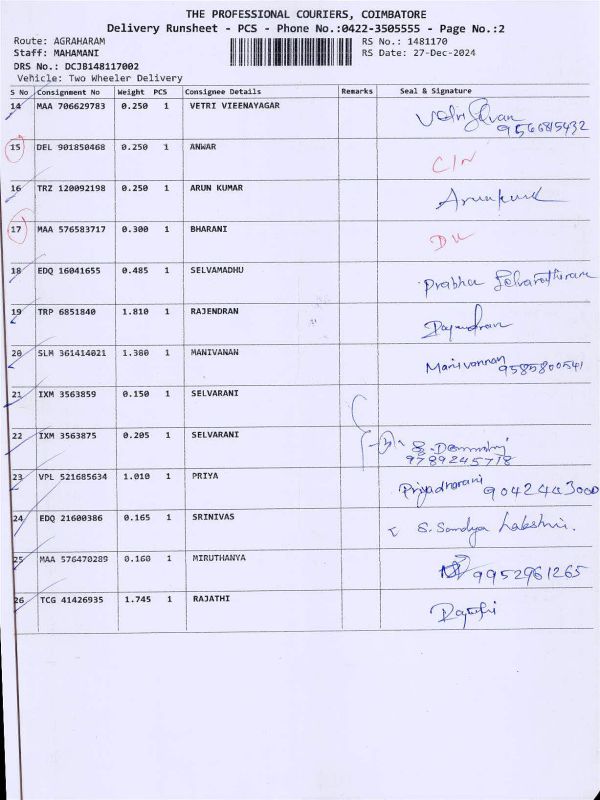 THE PROFESSIONAL COURIERS, COIMBATORE
Delivery Runsheet - PCS - Phone No.:0422-3505555 - Page No.:2
Route: AGRAHARAM RS No.: 1481170
Staff: MAHAMANI RS Date: 27-Dec-2024
DRS No.: DCJB148117002
Vehicle: Two Wheeler Delivery
S No Consignment No Weight PCS Consignee Details Remarks Seal & Signature
14 MAA 706629783 0.250 1 VETRI VIEENAYAGAR
9566815432
15 DEL 901850468 0.250 1 ANWAR C/N
16 TRZ 120092198 0.250 1 ARUN KUMAR
17 MAA 576583717 0.300 1 BHARANI
18 EDQ 16041655 0.485 1 SELVAMADHU Prabha
19 TRP 6851840 1.810 1 RAJENDRAN
20 SLM 361414021 1.380 1 MANIVANAN Manivannan
9585800541
21 IXM 3563859 0.150 1 SELVARANI
22 IXM 3563875 0.205 1 SELVARANI
9789245718
23 VPL 521685634 1.010 1 PRIYA Priyadharani 9042443000
24 EDQ 21600386 0.165 1 SRINIVAS S. Sandya Lakshmi.
25 MAA 576470289 0.160 1 MIRUTHANYA 9952961265
26 TCG 41426935 1.745 1 RAJATHI Rajathi